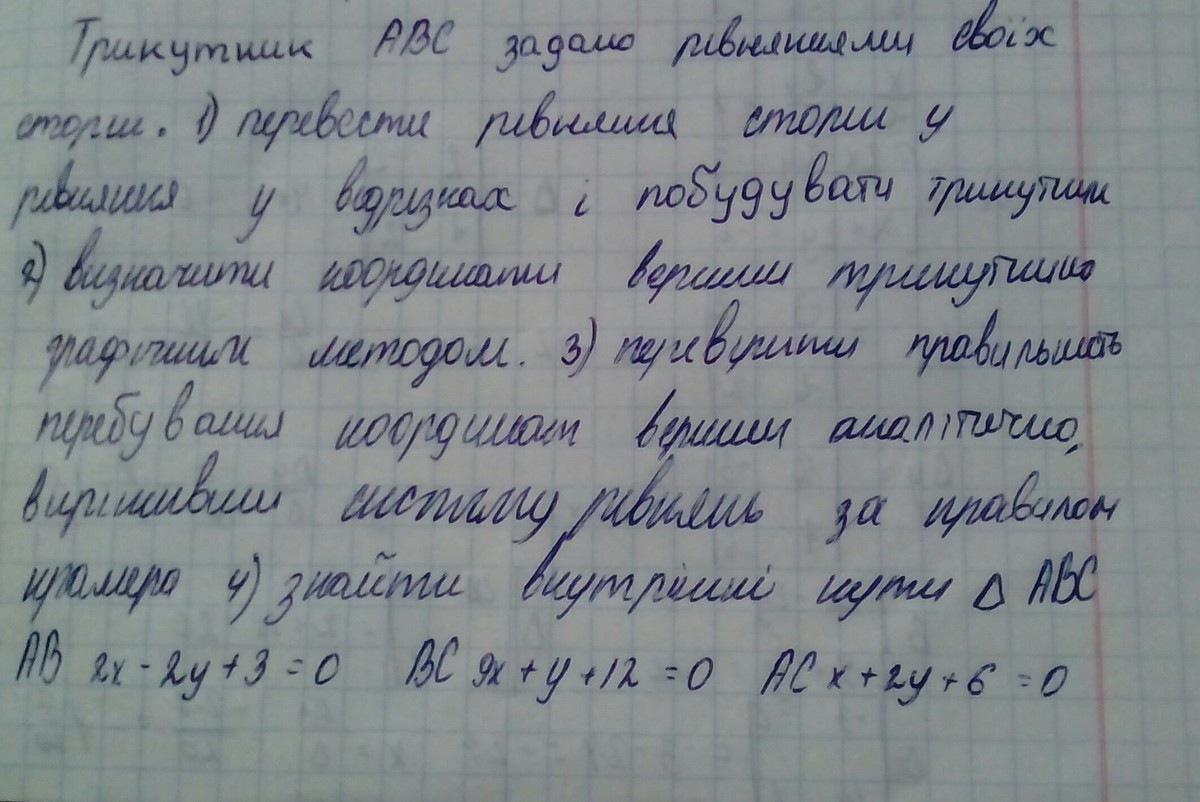 Трикутник ABC задано рівняннями своїх
сторін. 1) перевести рівняння сторін у
рівняння у відрізках і побудувати трикутник
2) визначити координати вершин трикутника
графічним методом. 3) перевірити правильність
перебування координат вершин аналітично,
вирішивши систему рівнянь за правилом
крамера 4) знайти внутрішні кути Δ ABC
AB 2x - 2y + 3 = 0 BC 9x + y + 12 = 0 AC x + 2y + 6 = 0